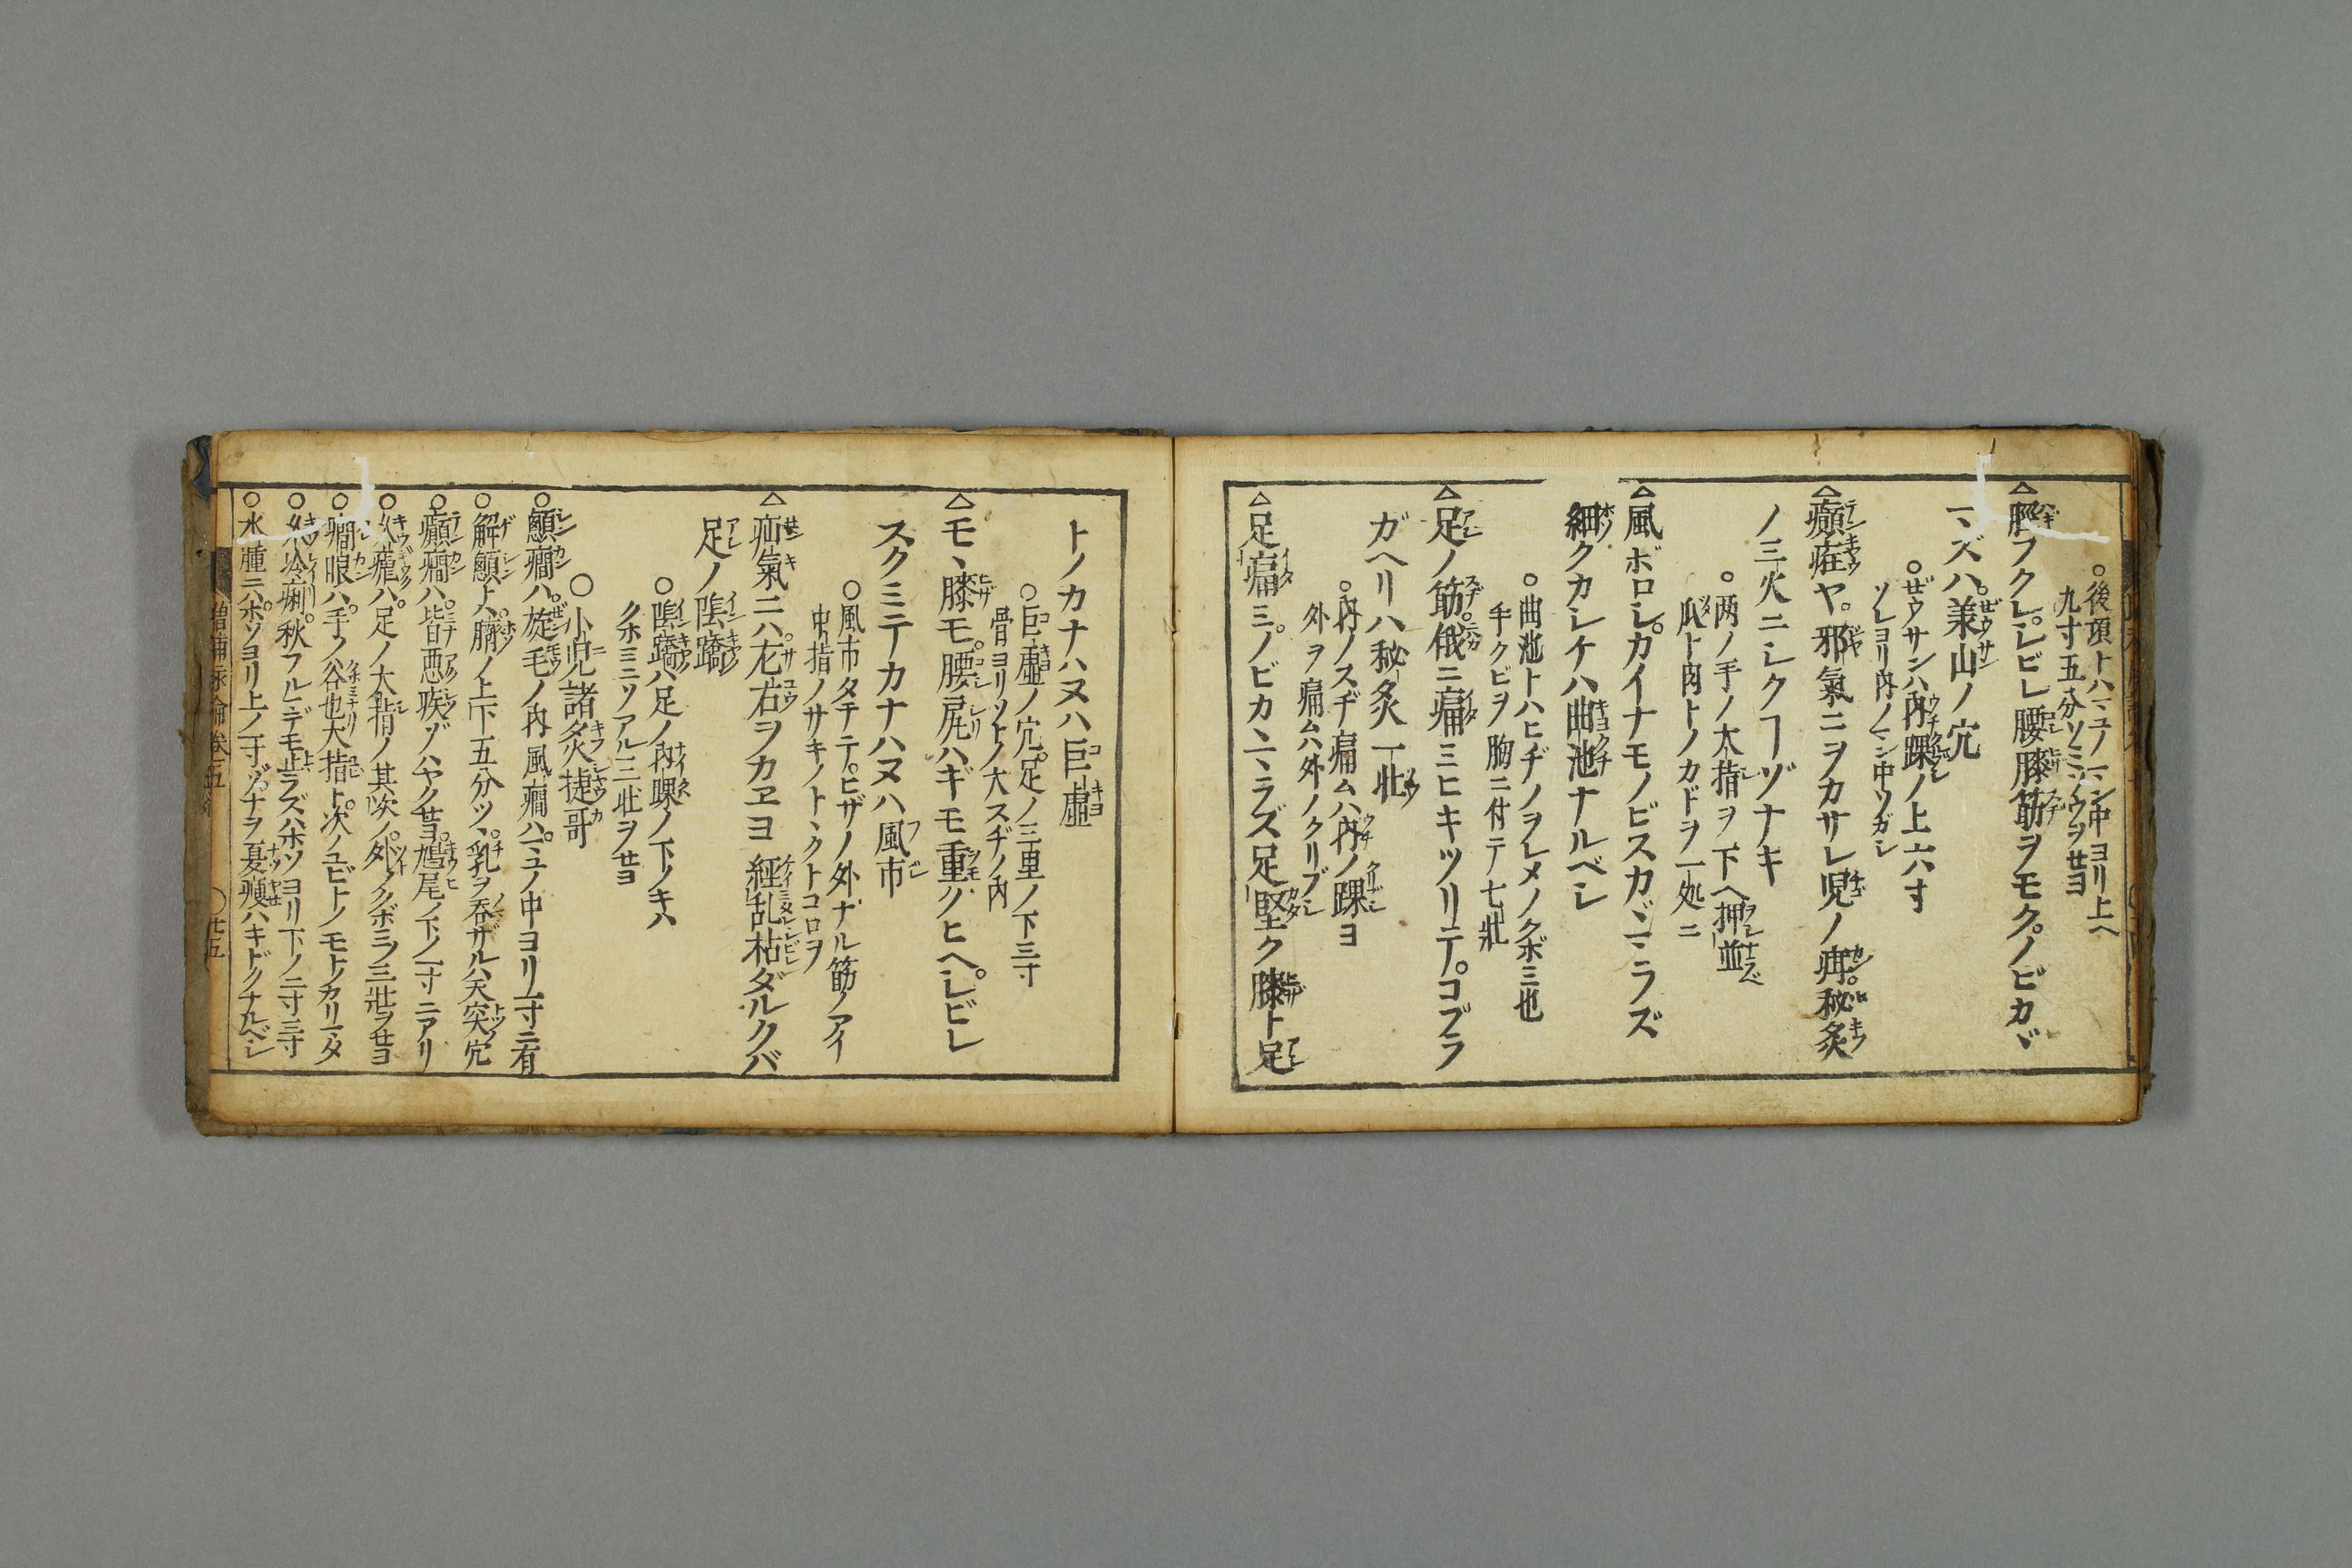 ○後頂トハマユノマン中ヨリ上ヘ
九寸五分ツミソウヲせヨ
△脛フクレ。シビレ腰膝筋ヲモク。ノビカヾ
マズハ。兼山ノ穴
○ぜウサンハ内踝ノ上六寸
ソレヨリ内ノマン中ソガシ
△癲狂ヤ。邪氣ニヲカサレ児ノ疳。秘灸
ノ三火ニシクーヅナキ
○两ノ手ノ大指ヲ下ヘ押並
爪ト肉トノカドヲ一処ニ
△風ボロシ。カイナモノビスカヾマラズ
細クカシケハ曲池ナルベシ
○曲池トハヒヂノヲレメノクボミ也
手クビヲ胸ニ付テ七壯
△足ノ筋。俄ニ痛ミヒキツリテ。コブラ
ガヘリハ秘灸一壯
○内ノスヂ痛ムハ内ノ踝ヨ
外ヲ痛ムハ外ノクリブシ
△足痛ミ。ノビカヾマラズ足堅ク膝ト足
トノカナハヌハ巨虛
○巨虛ノ穴。足ノ三里ノ下三寸
骨ヨリソトノ大スヂノ内
△モヽ膝モ。腰尻ハギモ重クヒヘ。シビレ
スクミテカナハヌハ風市
○風市タテテ。ヒザノ外ナル筋ノアイ
中指ノサキノトヾクトコロヲ
△疝氣ニハ。左右ヲカヱヨ經乱枯ダルクバ
足ノ陰蹻
○陰蹻ハ足ノ内踝ノ下ノキハ
クホミソアル三壯ヲせヨ
○小兒諸灸捷哥
○顖癇ハ。旋毛ノ内風癇ハ。マユノ中ヨリ一寸ニ有
○解顱ハ。臍ノ上下五分ツヽ。乳ヲ呑ザルハ天突ノ穴
○癲癇ハ。皆悪疾ゾハヤクせヨ。鳩尾ノ下ノ一寸ニアリ
○久瘧ハ。足ノ大指ノ其次ノ。外ノクボミヲ三壯ヲせヨ
○癇眼ハ。手ノ谷也大指ト。次ノユビトノモトノカリマタ
○久冷痢。秋フルニデモ止ラズハホソヨリ下ノ二寸三寸
○水腫ニハ。ホソヨリ上ノ一寸ゾ。ナヲ夏痩ハキドクナルベシ
増補永論巻五 ○廿五